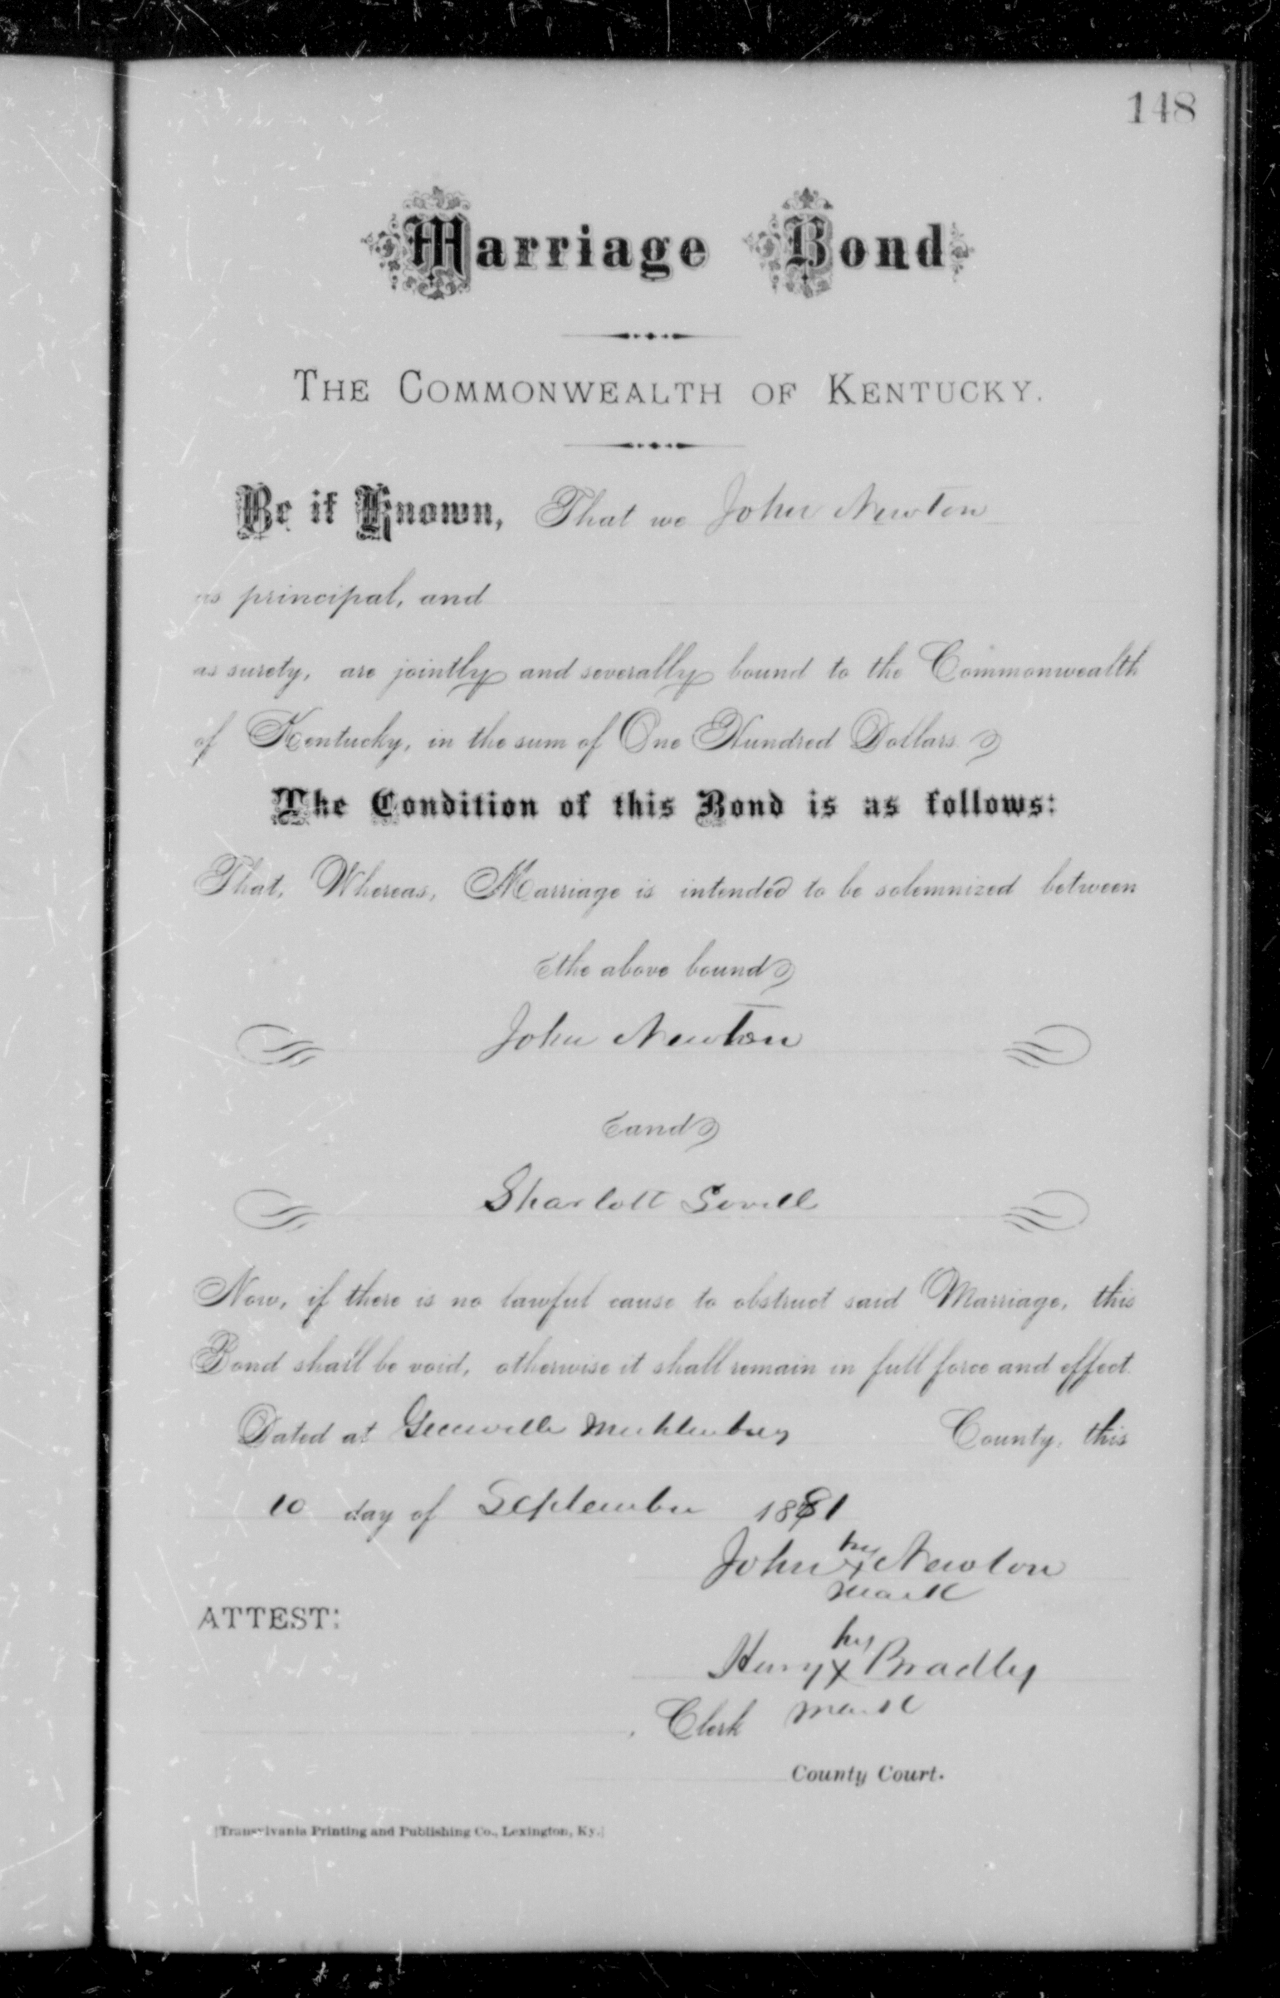 148
Marriage Bond
THE COMMONWEALTH OF KENTUCKY.
Be it Known, That we John Newton
as principal, and
as surety, are jointly and severally bound to the Commonwealth
of Kentucky, in the sum of One Hundred Dollars.
The Condition of this Bond is as follows:
That, Whereas, Marriage is intended to be solemnized between
the above bound
John Newton
and
Sharlott
Now, if there is no lawful cause to obstruct said Marriage, this
Bond shall be void, otherwise it shall remain in full force and effect.
Dated at County, this
10 day of September 1881
John his x mark Newton
ATTEST:
Henry his x mark Bradley
Clerk
County Court.
[Transylvania Printing and Publishing Co., Lexington, Ky.]